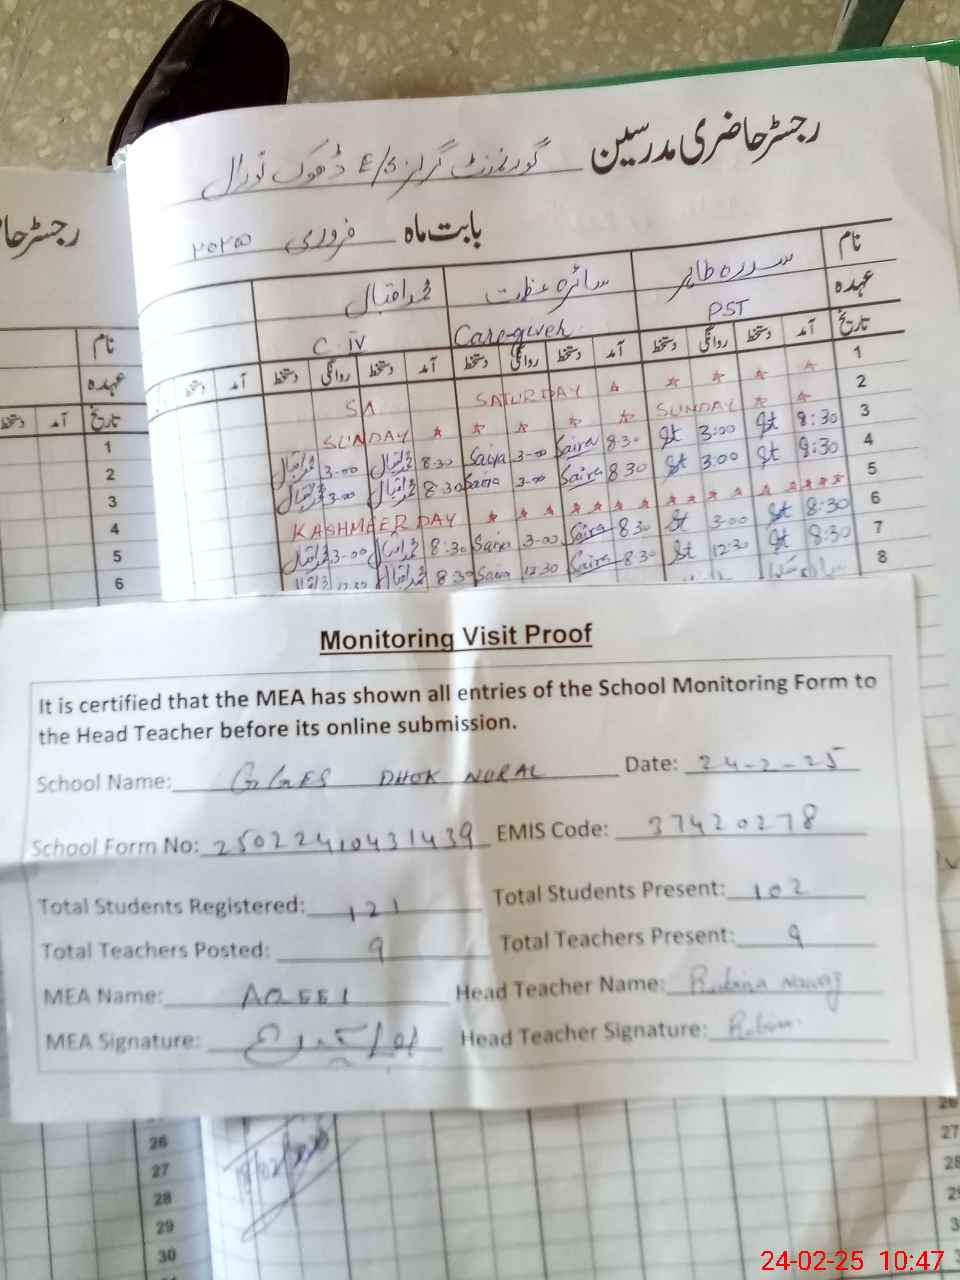 رجسٹر حاضری مدرسین گورنمنٹ گرلز E/S ڈھوک نورال
بابت ماہ فروری ۲۰۲۵
نام سدرہ طاہر سائرہ عظمت محمد اقبال
عہدہ PST Care-giver C-IV
تاریخ آمد دستخط روانگی دستخط آمد دستخط روانگی دستخط آمد دستخط روانگی دستخط آمد دستخط
1 SATURDAY SA
2 SUNDAY SUNDAY
3 8:30 St 3:00 St 8:30 Saira 3-00 Saira 8:30 محمد اقبال 3-00 محمد اقبال
4 8:30 St 3:00 St 8:30 Saira 3-00 Saira 8:30 محمد اقبال 3-00 محمد اقبال
5 KASHMEER DAY
6 8:30 St 3:00 St 8:30 Saira 3-00 Saira 8:30 محمد اقبال 3-00 محمد اقبال
7 8:30 St 12:30 St 8:30 Saira 12:30 Saira 8:30 محمد اقبال 12:30
8
رجسٹر حا
نام
عہدہ
تاریخ آمد دستخط
1
2
3
4
5
6
Monitoring Visit Proof
It is certified that the MEA has shown all entries of the School Monitoring Form to
the Head Teacher before its online submission.
School Name: GGES DHOK NURAL Date: 24-2-25
School Form No: 25022410431439 EMIS Code: 37420278
Total Students Registered: 121 Total Students Present: 102
Total Teachers Posted: 9 Total Teachers Present: 9
MEA Name: AQEEL Head Teacher Name: Rubina Nawaz
MEA Signature: Head Teacher Signature: Rubina
26
27
28
29
30
26
27
28
24-02-25 10:47